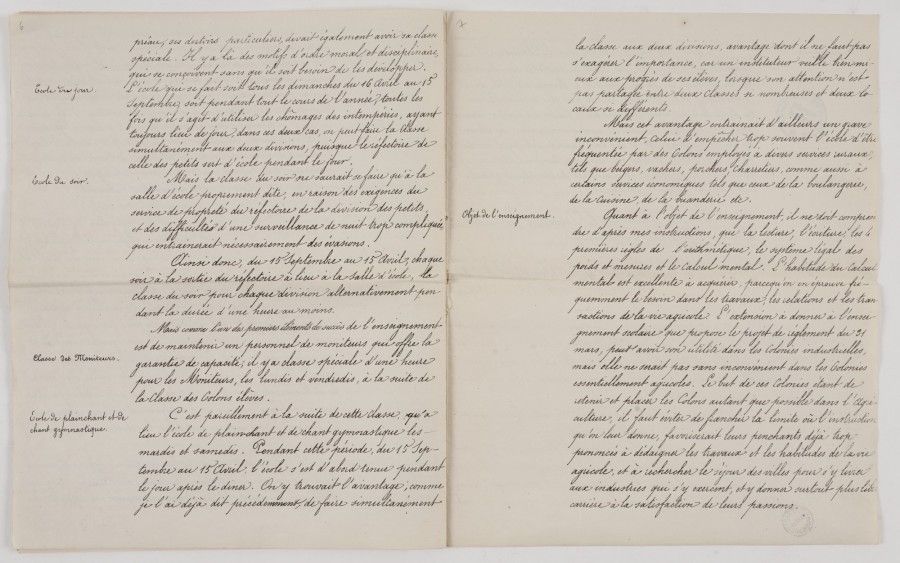 6
préau, ses dortoirs particuliers, devait également avoir sa classe
spéciale. Il y a là des motifs d'ordre moral et disciplinaire,
qui se conçoivent sans qu'il soit besoin de les développer.
Ecole du jour.
L'école que se fait soit tous les dimanches du 16 Avril au 15
Septembre, soit pendant tout le cours de l'année, toutes les
fois qu'il s'agit d'utiliser les chômages des intempéries, ayant
toujours lieu de jour, dans ces deux cas, on peut faire la classe
simultanément aux deux divisions, puisque le réfectoire de
celle des petits sert d'école pendant le jour.
Ecole du soir.
Mais la classe du soir ne saurait se faire qu'à la
salle d'école proprement dite, en raison des exigences du
service de propreté du réfectoire de la division des petits,
et des difficultés d'une surveillance de nuit trop compliquée
qui entraînerait nécessairement des évasions.
Ainsi donc, du 15 Septembre au 15 Avril, chaque
soir à la sortie du réfectoire a lieu à la salle d'école, la
classe du soir pour chaque division alternativement pen-
dant la durée d'une heure au moins.
Mais comme l'un des premiers éléments de succès de l'enseignement
est de maintenir un personnel de moniteurs qui offre la
Classe des Moniteurs.
garantie de capacité, il y a classe spéciale d'une heure
pour les Moniteurs, les lundis et vendredis, à la suite de
la classe des Colons élèves.
Ecole de plainchant et de
chant gymnastique.
C'est pareillement à la suite de cette classe qu'a
lieu l'école de plainchant et de chant gymnastique les
mardis et samedis. Pendant cette période, du 15 Sep-
tembre au 15 Avril, l'école s'est d'abord tenue pendant
le jour après le dîner. On y trouvait l'avantage, comme
je l'ai déjà dit précédemment, de faire simultanément
7
la classe aux deux divisions, avantage dont il ne faut pas
s'exagérer l'importance, car un instituteur veille bien mi-
eux aux progrès de ses élèves, lorsque son attention n'est
pas partagée entre deux classes si nombreuses et deux lo-
caux si différents.
Mais cet avantage entraînait d'ailleurs un grave
inconvénient, celui d'empêcher trop souvent l'école d'être
fréquentée par des Colons employés à divers services ruraux,
tels que bergers, vachers, porchers, charretiers, comme aussi à
certains services économiques tels que ceux de la boulangerie,
de la cuisine, de la buanderie etc.
Objet de l'enseignement.
Quant à l'objet de l'enseignement, il ne doit compren-
dre d'après mes instructions, que la lecture, l'écriture, les 4
premières règles de l'arithmétique, le système légal des
poids et mesures et le calcul mental. L'habitude du calcul
mental est excellente à acquérir, parcequ'on en éprouve fré-
quemment le besoin dans les travaux, les relations et les tran-
sactions de la vie agricole. L'extension à donner à l'ensei-
gnement scolaire que propose le projet de règlement du 31
mars, peut avoir son utilité dans les Colonies industrielles,
mais elle ne serait pas sans inconvénient dans les Colonies
essentiellement agricoles. Le but de ces Colonies étant de
retenir et placer les Colons autant que possible dans l'Agri-
culture, il faut éviter de franchir la limite où l'instruction
qu'on leur donne, favoriserait leurs penchants déjà trop
prononcés à dédaigner les travaux et les habitudes de la vie
agricole, et à rechercher le séjour des villes pour s'y livrer
aux industries qui s'y exercent, et y donner surtout plus libre
carrière à la satisfaction de leurs passions.